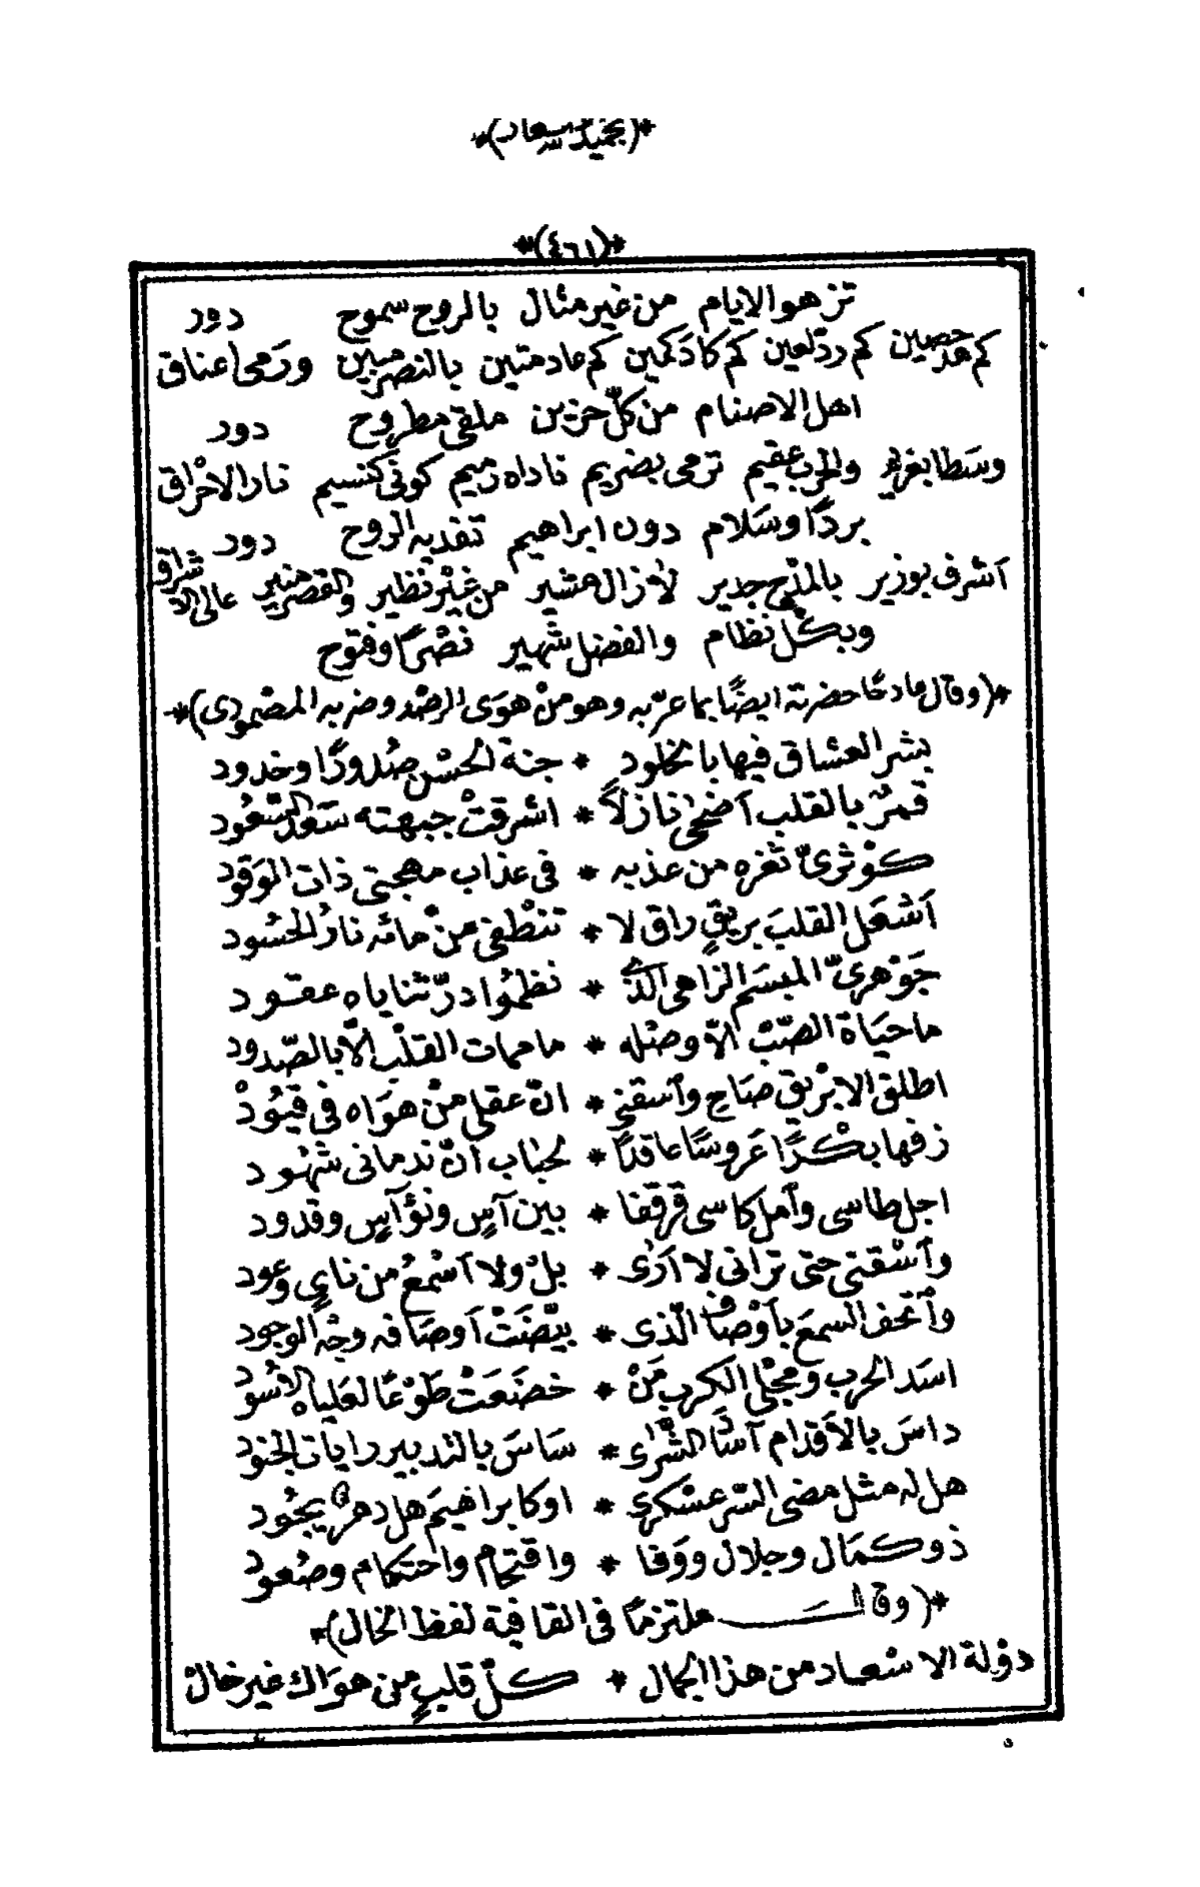 *(٤٦١)*
تزهو الايام من غير مثال بالروح سموح دور
كم هد حصين كم رد لعين كم كاد كمين كم عاد متين بالنصر مبين ورمى اعناق
اهل الاصنام من كلّ حزين ملقى مطروح دور
وسطا بغريم والحرب عقيم ترمى بضريم ناداه زميم كونى كنسيم نار الاحْراق
بردًا وسَلام دون ابراهيم تفديه الروح دور
اَشرف بوزير بالمدْح جدير لازال مشير من غيْر نظير والقصر منير عالى الاشراق
وبكلّ نظام والفضل شهير نصْرًا وفتوح
*(وقال مادحًا حضرته ايضًا بما عرّبه وهو منْ هوَى الرصْد وضربه المصْمودى)*
بشر العشاق فيها بالخلود * جنة الحُسْن صُدودًا وخدود
قمرٌ بالقلب اَضحَى نازلاً * اشرقتْ جبهته سَعْد السّعُود
كوْثرىّ ثغره من عذبه * فى عذاب مهجتى ذات الوَقود
اَشعَل القلبَ بريقٍ راق لا * تنطْفى منْ مائه نارُ الحَسُود
جَوْهرىّ المبسَم الزاهى الذى * نظمُوا درّ ثناياه عقود
ماحيَاة الصّبّ الاّ وصْله * مامـمات القلْب الاّ بالصّدود
اطلق الابْريق صَاحِ وٱسقنى * انّ عقلى منْ هوَاه فى قيُودْ
زفها بكْرًا عَروسًا عاقدًا * لحبَاب انّ ندمانى شهُود
اجل طاسى وٱمل كاسى قرقفا * بين آسٍ ونؤآسٍ وقدود
وٱسْقنى حتى ترانى لا اَرَى * بلْ ولا اَسْمعُ من ناىٍ وعود
وٱتحف السمعَ باَوْصَاف الّذى * بيّضَتْ اَوصَافه وجْه الوجود
اسَد الحرب ومجْلى الكرب مَنْ * خضَعَتْ طَوْعًا لعَلياه الاُسُود
داسَ بالاَقدام آسَاد الشّرَى * سَاسَ بالتدبير رايات الجنود
هل له مثل مضى السّر عسْكرى * او كابراهيمَ هل دهرٌ يجُود
ذو كمَال وجلال ووَفا * واقتحام واحتكام وصُعود
*(وقال ملتزمًا فى القافية لفظ الخال)*
دوْلة الاسْعاد من هذا الجمال * كلّ قلبٍ من هوَاك غير خالْ